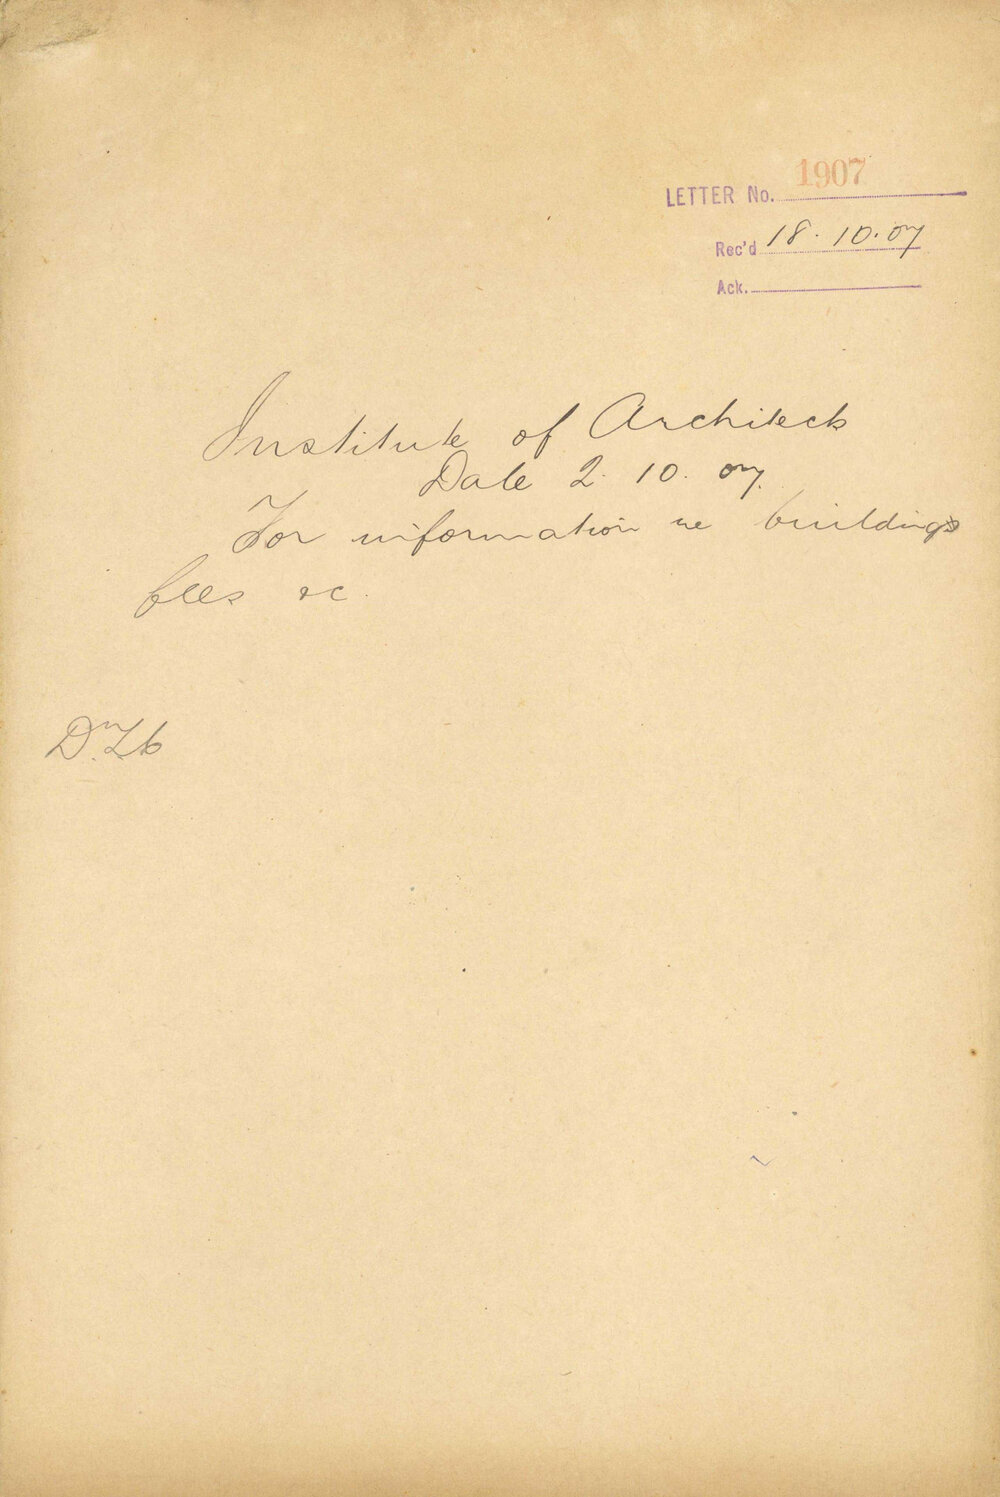 LETTER No. 1907
Rec'd 18.10.07
Ack.
Institute of Architects
Date 2.10.07.
For information re buildings
fees &c.